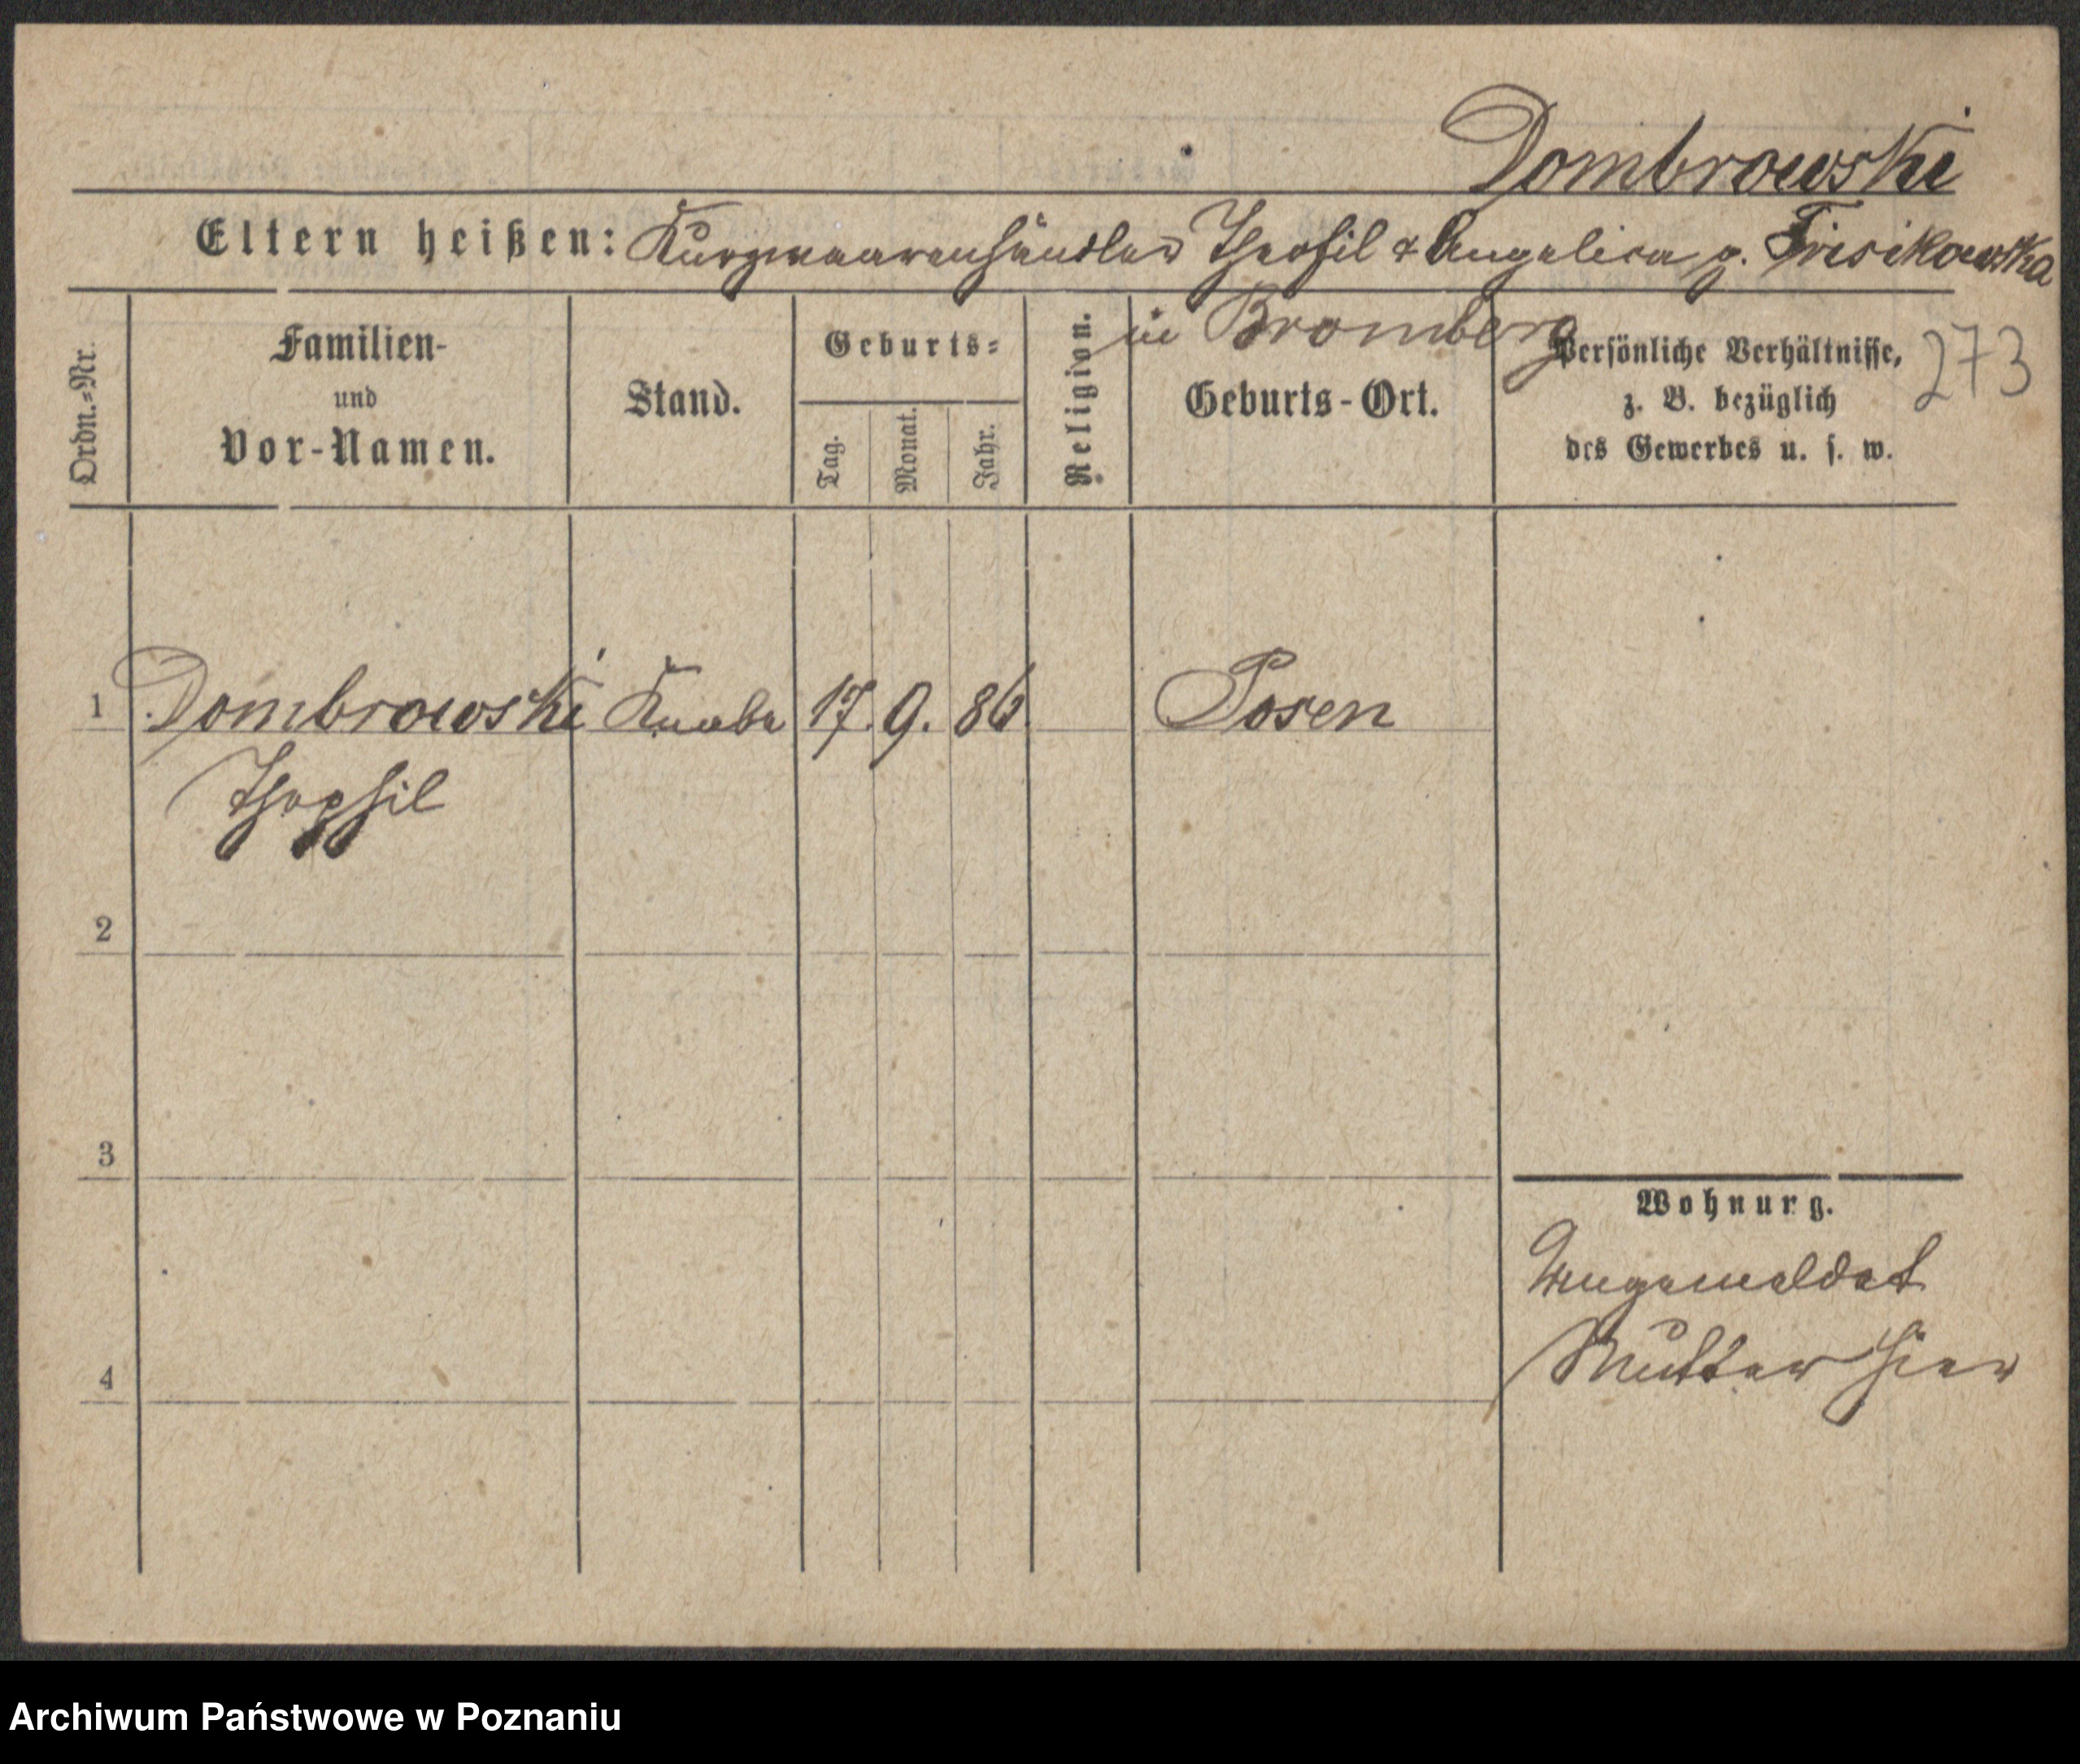 Dombrowski
Eltern heißen: Kurzwaarenhändler Theofil & Angelica g. Frisikowska
in Bromberg
273
Ordn.-Nr.
Familien-
und
Vor-Namen.
Stand.
Geburts-
Tag.
Monat.
Jahr.
Religion.
Geburts-Ort.
Persönliche Verhältnisse,
z. B. bezüglich
des Gewerbes u. s. w.
1 Dombrowski Knabe 17. 9. 86. Posen
Theophil
2
3
4
Wohnung.
Angemeldet
Mutter hier
Archiwum Państwowe w Poznaniu